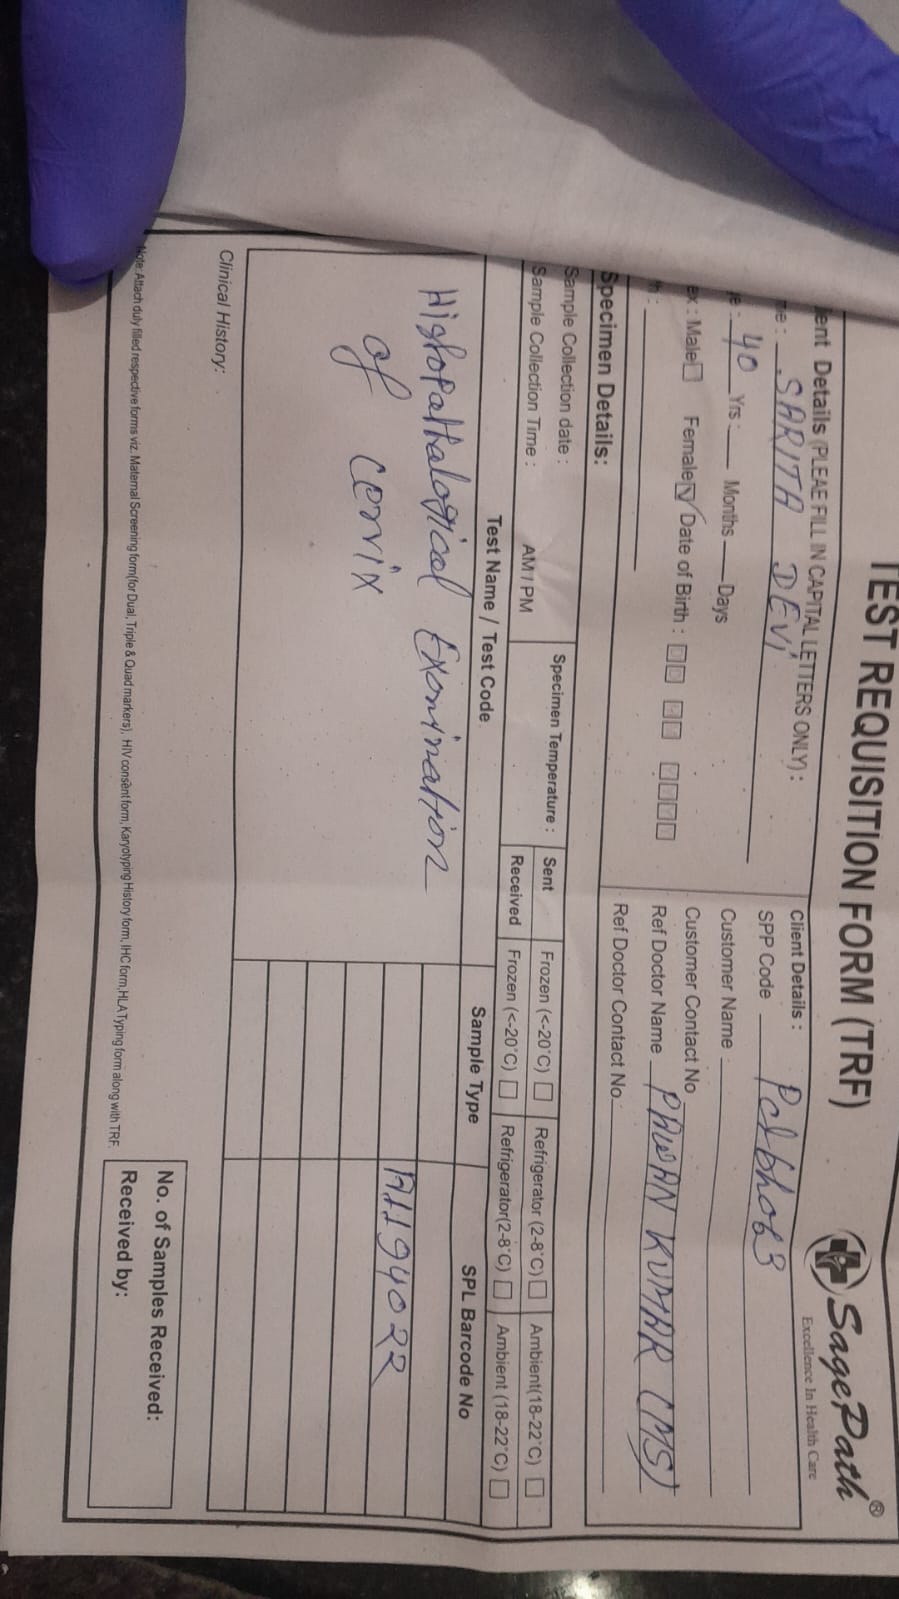 TEST REQUISITION FORM (TRF)
SagePath®
Excellence In Health Care
ent Details (PLEAE FILL IN CAPITAL LETTERS ONLY):
me : SARITA DEVI
e : 40 Yrs : Months Days
ex : Male Female ✓ Date of Birth :
th :
Client Details :
SPP Code
Customer Name :
Customer Contact No
Ref Doctor Name KUMAR (MS)
Ref Doctor Contact No.
Specimen Details:
Sample Collection date :
Sample Collection Time : AM / PM
Specimen Temperature :
Sent Frozen (<-20°C) Refrigerator (2-8°C) Ambient(18-22°C)
Received Frozen (<-20°C) Refrigerator(2-8°C) Ambient (18-22°C)
Test Name / Test Code Sample Type SPL Barcode No
Histopathalogical Examination
of cervix
A1194022
Clinical History:
Note: Attach duly filled respective forms viz. Maternal Screening form(for Dual, Triple & Quad markers), HIV consent form, Karyotyping History form, IHC form,HLA Typing form along with TRF.
No. of Samples Received:
Received by: